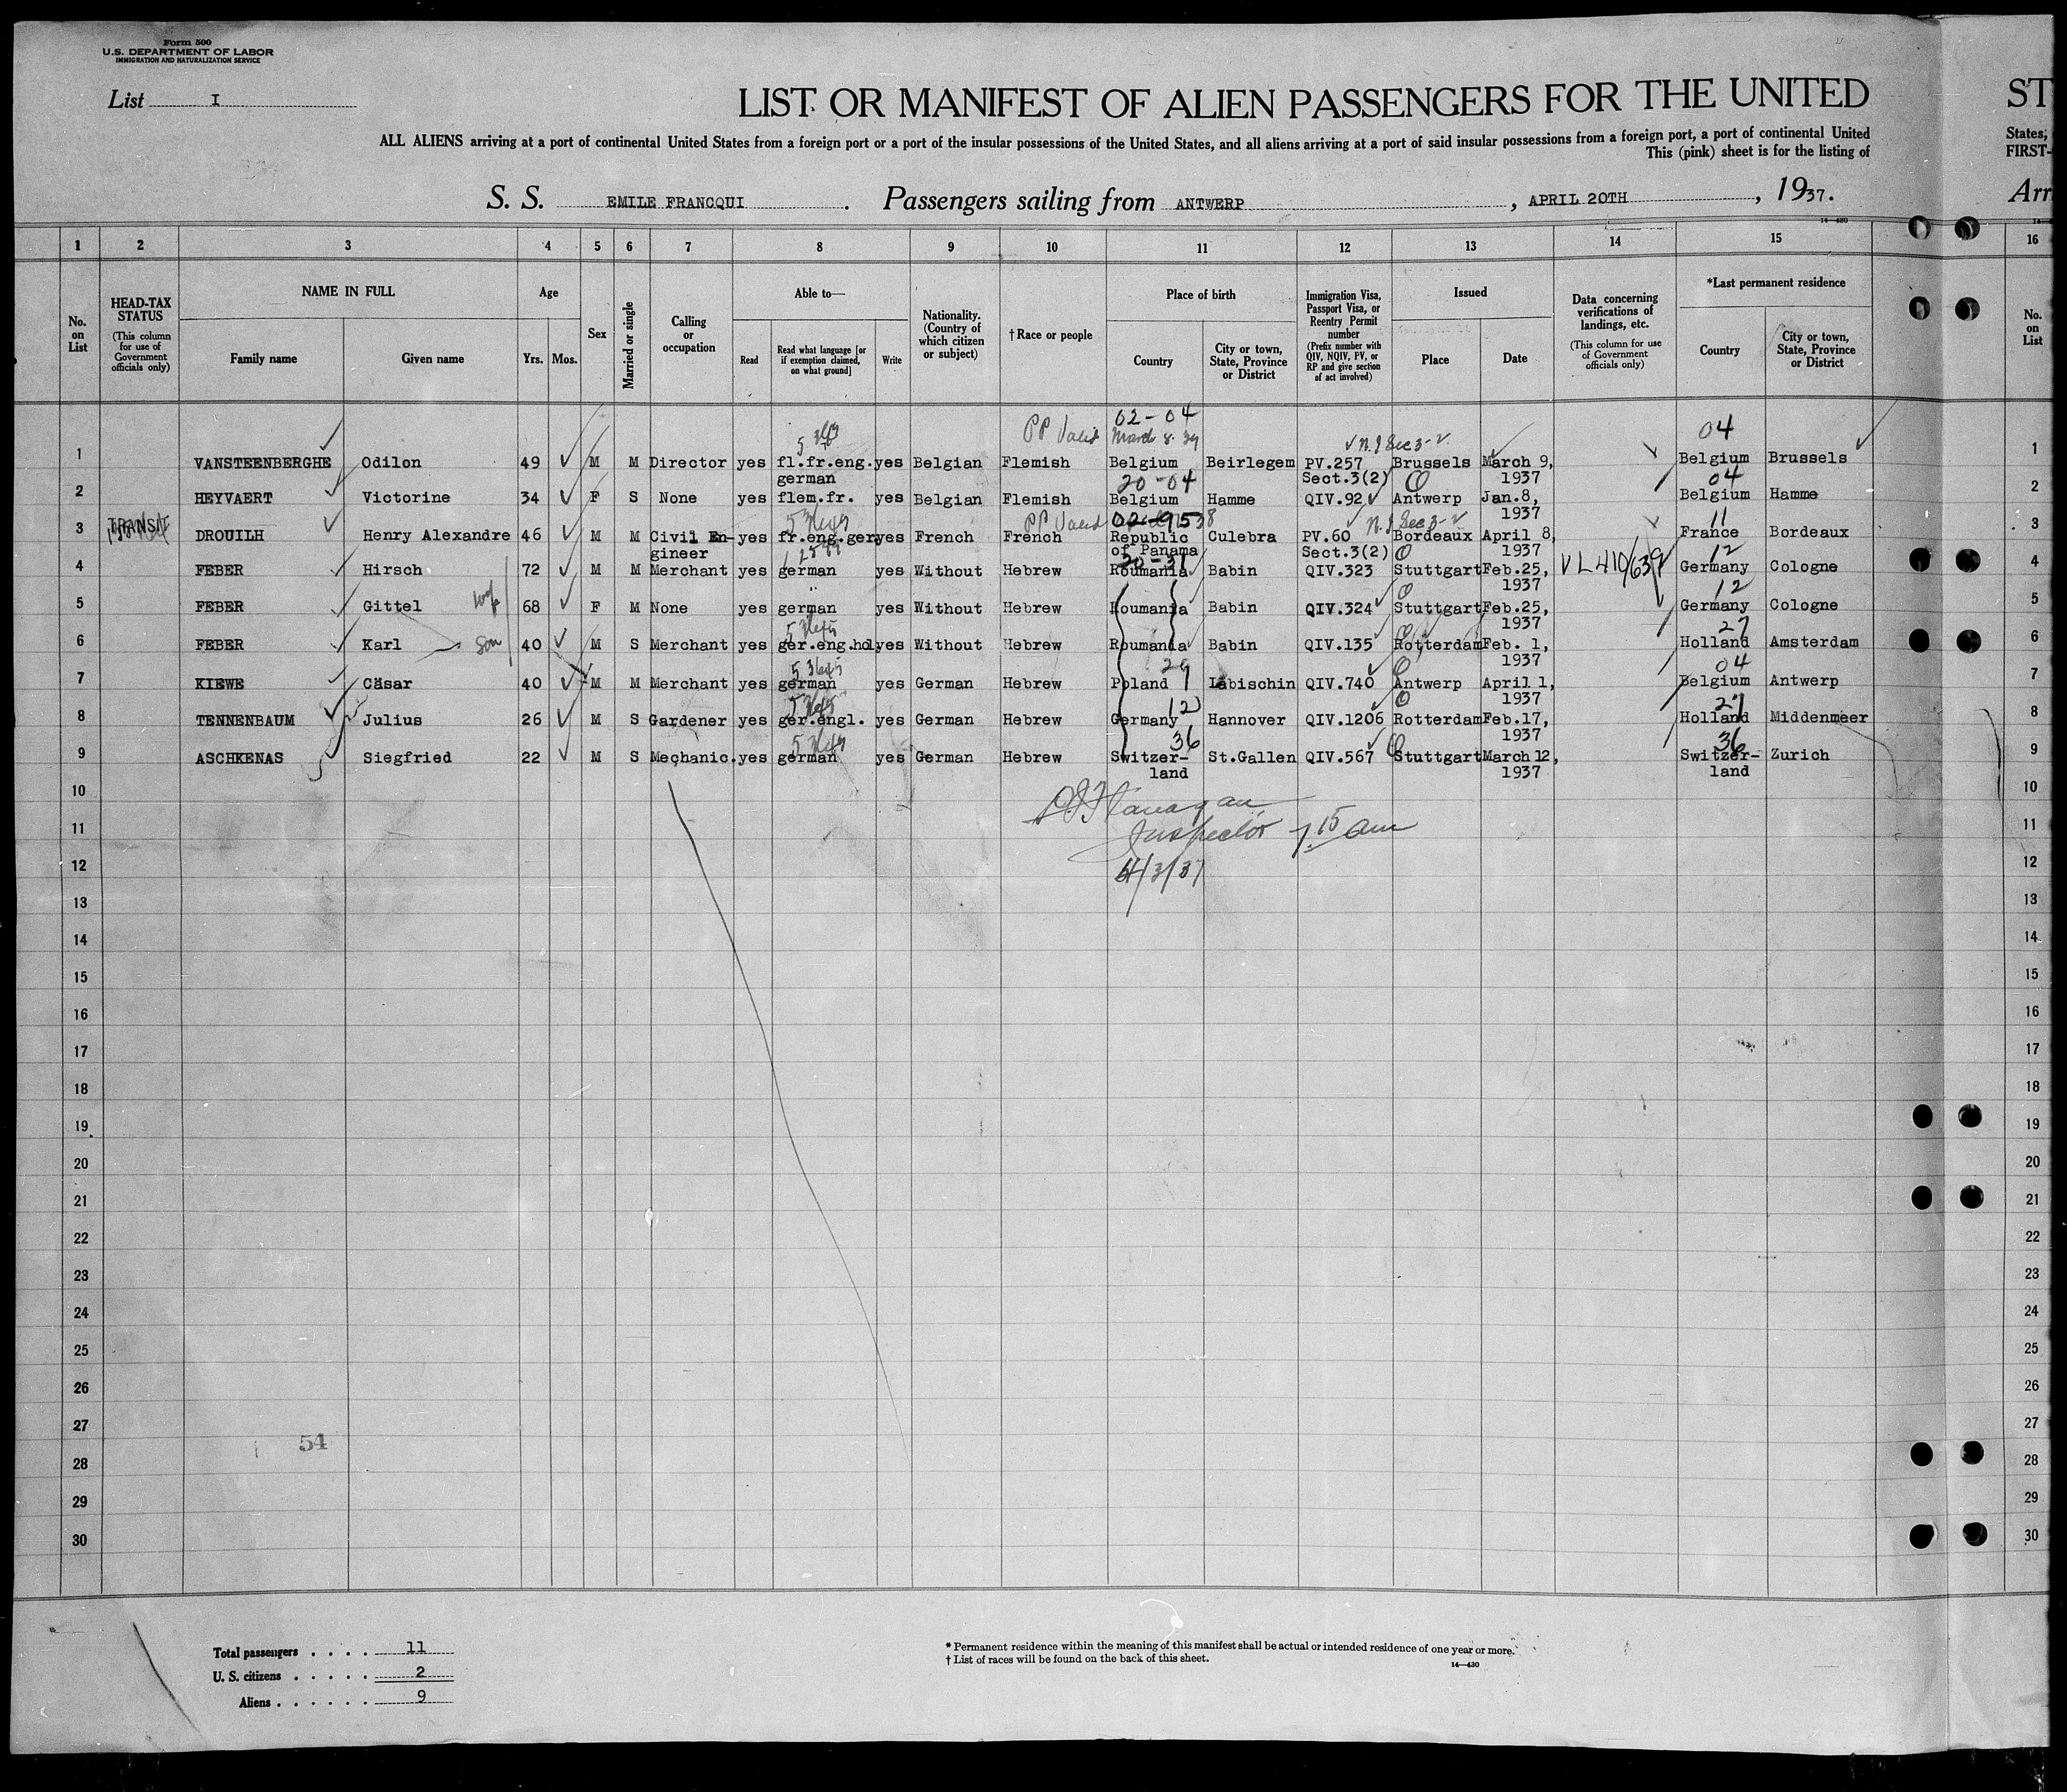 Form 500
U.S. DEPARTMENT OF LABOR
IMMIGRATION AND NATURALIZATION SERVICE
List I
LIST OR MANIFEST OF ALIEN PASSENGERS FOR THE UNITED ST
ALL ALIENS arriving at a port of continental United States from a foreign port or a port of the insular possessions of the United States, and all aliens arriving at a port of said insular possessions from a foreign port, a port of continental United States;
This (pink) sheet is for the listing of FIRST-
S. S. EMILE FRANCQUI. Passengers sailing from ANTWERP, APRIL 20TH, 1937. Arr
14-430
1 2 3 4 5 6 7 8 9 10 11 12 13 14 15 16
No. on List
HEAD-TAX STATUS (This column for use of Government officials only)
NAME IN FULL Family name Given name
Age Yrs. Mos.
Sex
Married or single
Calling or occupation
Able to— Read Read what language [or if exemption claimed, on what ground] Write
Nationality. (Country of which citizen or subject)
† Race or people
Place of birth Country City or town, State, Province or District
Immigration Visa, Passport Visa, or Reentry Permit number (Prefix number with QIV, NQIV, PV, or RP and give section of act involved)
Issued Place Date
Data concerning verifications of landings, etc. (This column for use of Government officials only)
*Last permanent residence Country City or town, State, Province or District
No. on List
02-04
PP Valid March 8. 39 N.I Sec 3-2 04
1 VANSTEENBERGHE Odilon 49 M M Director yes fl.fr.eng. yes Belgian Flemish Belgium Beirlegem PV.257 Brussels March 9, Belgium Brussels 1
german Sect.3(2) 1937
20-04 04
2 HEYVAERT Victorine 34 F S None yes flem.fr. yes Belgian Flemish Belgium Hamme QIV.92 Antwerp Jan.8, Belgium Hamme 2
1937
TRANSIT PP Valid N.I Sec 3-2 11
3 DROUILH Henry Alexandre 46 M M Civil En- yes fr.eng.ger. yes French French Republic Culebra PV.60 Bordeaux April 8, France Bordeaux 3
gineer of Panama Sect.3(2) 1937
20-31 12
4 FEBER Hirsch 72 M M Merchant yes german yes Without Hebrew Roumania Babin QIV.323 Stuttgart Feb.25, V L 410/639 Germany Cologne 4
1937
12
5 FEBER Gittel wife 68 F M None yes german yes Without Hebrew Roumania Babin QIV.324 Stuttgart Feb.25, Germany Cologne 5
1937
27
6 FEBER Karl son 40 M S Merchant yes ger.eng.hol. yes Without Hebrew Roumania Babin QIV.135 Rotterdam Feb. 1, Holland Amsterdam 6
1937
29 04
7 KIEWE Cäsar 40 M M Merchant yes german yes German Hebrew Poland Labischin QIV.740 Antwerp April 1, Belgium Antwerp 7
1937
12 27
8 TENNENBAUM Julius 26 M S Gardener yes ger.engl. yes German Hebrew Germany Hannover QIV.1206 Rotterdam Feb.17, Holland Middenmeer 8
1937
36 36
9 ASCHKENAS Siegfried 22 M S Mechanic. yes german yes German Hebrew Switzer- St.Gallen QIV.567 Stuttgart March 12, Switzer- Zurich 9
land 1937 land
10 10
Flanagan
11 Inspector 7 15 am 11
12 12
13 13
14 14
15 15
16 16
17 17
18 18
19 19
20 20
21 21
22 22
23 23
24 24
25 25
26 26
27 27
54
28 28
29 29
30 30
Total passengers . . . . 11
U. S. citizens . . . . . 2
Aliens . . . . . . 9
* Permanent residence within the meaning of this manifest shall be actual or intended residence of one year or more.
† List of races will be found on the back of this sheet.
14-430